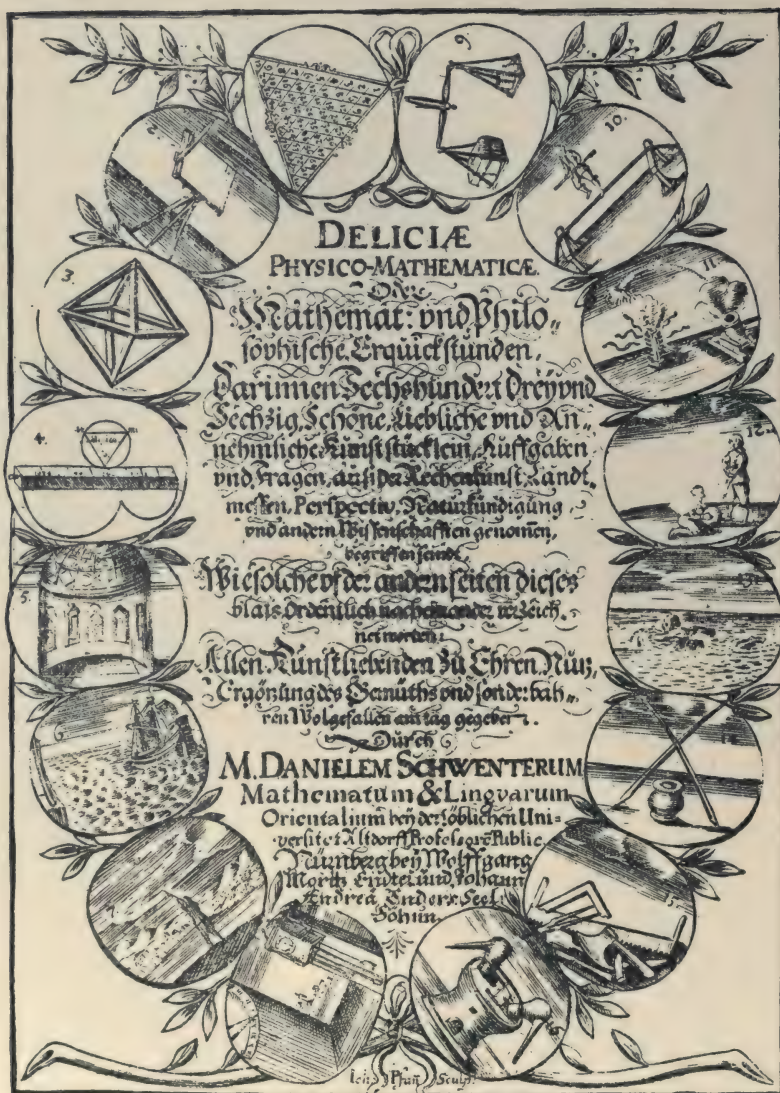 DELICIÆ
PHYSICO-MATHEMATICÆ.
Oder
Mathemat: vnd Philo„
sophische Erquickstunden,
Darinnen Sechshundert Drey vnd
Sechzig, Schöne, Liebliche vnd An„
nehmliche Kunststücklein, Auffgaben
vnd Fragen, auß der Rechenkunst, Landt„
messen, Perspectiv, Naturkündigung
vnd andern Wissenschafften genomen,
begriffen seindt,
Wie solche vf der andern seiten dieses
blats Ordentlich nacheinander verzeich„
net worden:
Allen Kunstliebenden zu Ehren, Nutz,
Ergötzung des Gemüths vnd sonderbah„
ren Wolgefallen am tag gegeben.
Durch
M. DANIELEM SCHWENTERUM
Mathematum & Lingvarum
Orientalium bey der löblichen Uni=
versitet Altdorff Professorē Public.
Nürnberg bey Wolffgang
Moritz Endter und Johann
Andreä Endters Seel:
Söhne.
2.
3.
4.
5.
6
7.
9
10.
11.
12.
13.
15.
16.
Sculps: